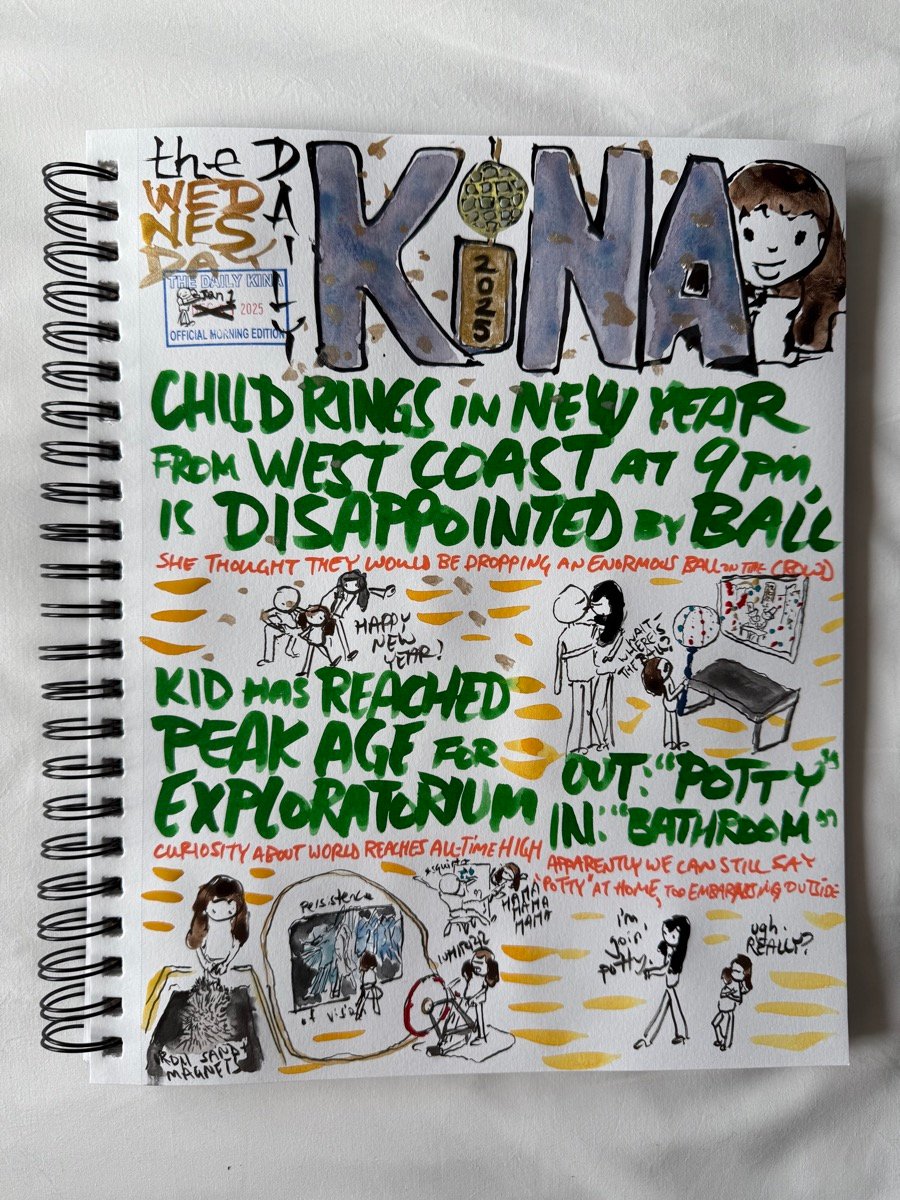 the DAILY
KiNA
WED
NES
DAY
2025
THE DAILY KINA
Jan 1
2025
OFFICIAL MORNING EDITION
CHILD RINGS IN NEW YEAR
FROM WEST COAST AT 9PM,
IS DISAPPOINTED BY BALL
SHE THOUGHT THEY WOULD BE DROPPING AN ENORMOUS BALL ON THE CROWD
HAPPY
NEW
YEAR!
WAIT SO
WHERE IS
THE BALL?
KID HAS REACHED
PEAK AGE FOR
EXPLORATORIUM
CURIOSITY ABOUT WORLD REACHES ALL-TIME HIGH
IRON SANDY
MAGNETS
persistence
of vision
*squirt*
HAHA
HAHA
HAHA
OUT: "POTTY"
IN: "BATHROOM"
APPARENTLY WE CAN STILL SAY
"POTTY" AT HOME, TOO EMBARRASSING OUTSIDE
i'm
goin'
potty.
ugh.
REALLY?